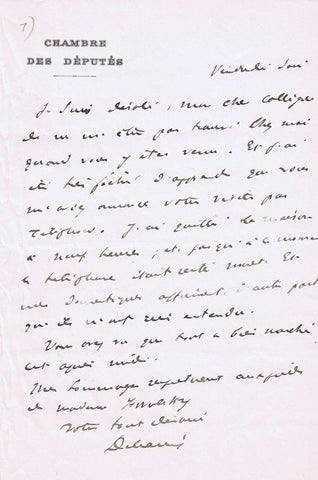 1)
CHAMBRE
DES DÉPUTÉS
Vendredi soir
Je suis désolé, mon cher collègue
de ne m'être pas trouvé chez moi
quand vous y êtes venu. Et j'ai
été très fâché d'apprendre que vous
m'aviez annoncé votre visite par
téléphone. J'ai quitté la maison
à neuf heures ; et jusqu'à ce moment
le téléphone était resté muet. Et
mes domestiques affirment, d'autre part
qu'ils n'ont rien entendu.
Vous avez vu que tout a bien marché
cet après midi.
Mes hommages respectueux aux pieds
de madame
Votre tout dévoué
Deschanel